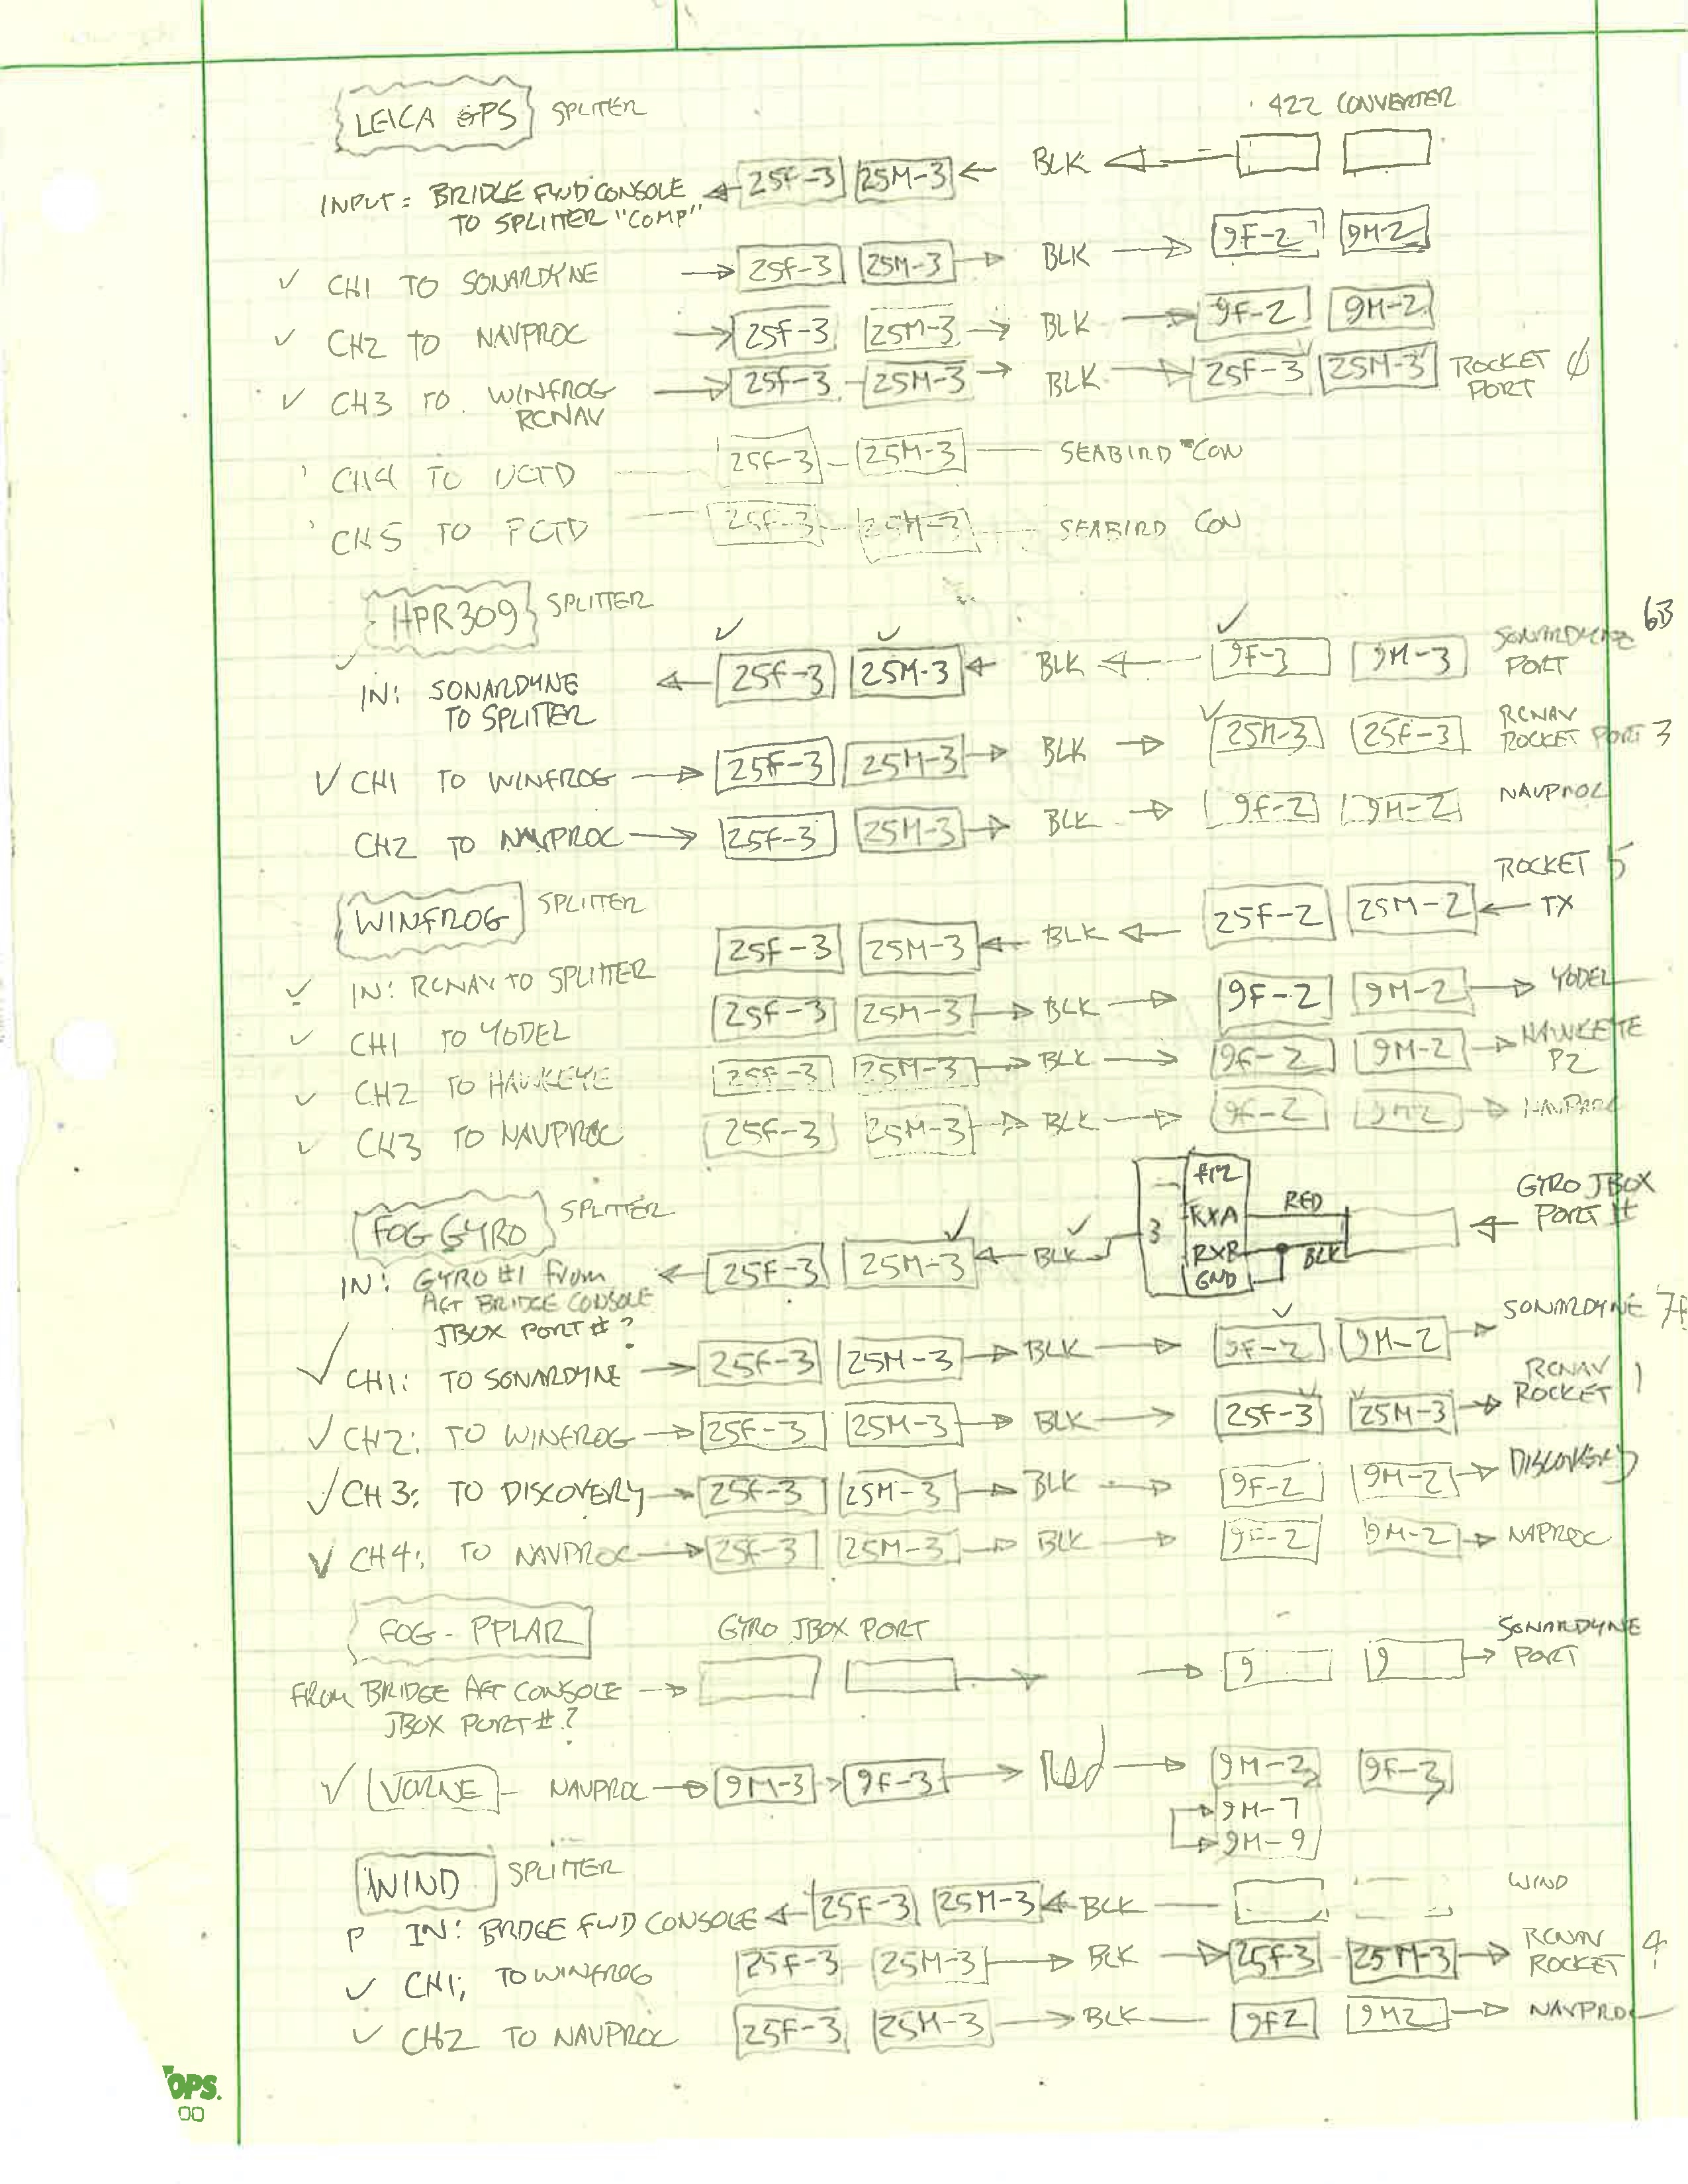 LEICA GPS SPLITER 422 CONVERTER
INPUT = BRIDGE FWD CONSOLE 25F-3 25M-3 BLK
TO SPLITTER "COMP"
CH1 TO SONARDYNE 25F-3 25M-3 BLK 9F-2 9M-2
CH2 TO NAVPROC 25F-3 25M-3 BLK 9F-2 9M-2
CH3 TO WINFROG 25F-3 25M-3 BLK 25F-3 25M-3 ROCKET Ø
RCNAV PORT
CH4 TO UCTD 25F-3 25M-3 SEABIRD CON
CH5 TO PCTD 25F-3 25M-3 SEABIRD CON
HPR309 SPLITTER
IN: SONARDYNE 25F-3 25M-3 BLK 9F-3 9M-3 SONARDYNE 6B
TO SPLITTER PORT
CH1 TO WINFROG 25F-3 25M-3 BLK 25M-3 25F-3 RCNAV
ROCKET PORT 3
CH2 TO NAVPROC 25F-3 25M-3 BLK 9F-2 9M-2 NAVPROC
WINFROG SPLITTER ROCKET 5
IN: RCNAV TO SPLITTER 25F-3 25M-3 BLK 25F-2 25M-2 TX
CH1 TO YODEL 25F-3 25M-3 BLK 9F-2 9M-2 YODEL
CH2 TO HAWKEYE 25F-3 25M-3 BLK 9F-2 9M-2 HAWKEYE
P2
CH3 TO NAVPROC 25F-3 25M-3 BLK 9F-2 9M2 NAVPROC
FOG GYRO SPLITTER
RXA RED GYRO JBOX
3 PORT #
IN: GYRO #1 From 25F-3 25M-3 BLK RXB BLK
AFT BRIDGE CONSOLE GND
JBOX PORT #?
CH1: TO SONARDYNE 25F-3 25M-3 BLK 9F-2 9M-2 SONARDYNE
CH2: TO WINFROG 25F-3 25M-3 BLK 25F-3 25M-3 RCNAV
ROCKET 1
CH3: TO DISCOVERY 25F-3 25M-3 BLK 9F-2 9M-2 DISCOVERY
CH4: TO NAVPROC 25F-3 25M-3 BLK 9F-2 9M-2 NAPROC
FOG - PPLAR GYRO JBOX PORT
FROM BRIDGE AFT CONSOLE 9 9 SONARDYNE
JBOX PORT #? PORT
VORNE - NAVPROC 9M-3 9F-3 Red 9M-2 9F-3
9M-7
9M-9
WIND SPLITTER
P IN: BRDGE FWD CONSOLE 25F-3 25M-3 BLK WIND
CH1; TO WINFROG 25F-3 25M-3 BLK 25F-3 25M-3 RCNAV
ROCKET 4
CH2 TO NAVPROC 25F-3 25M-3 BLK 9F2 9M2 NAVPROC
OPS.
00